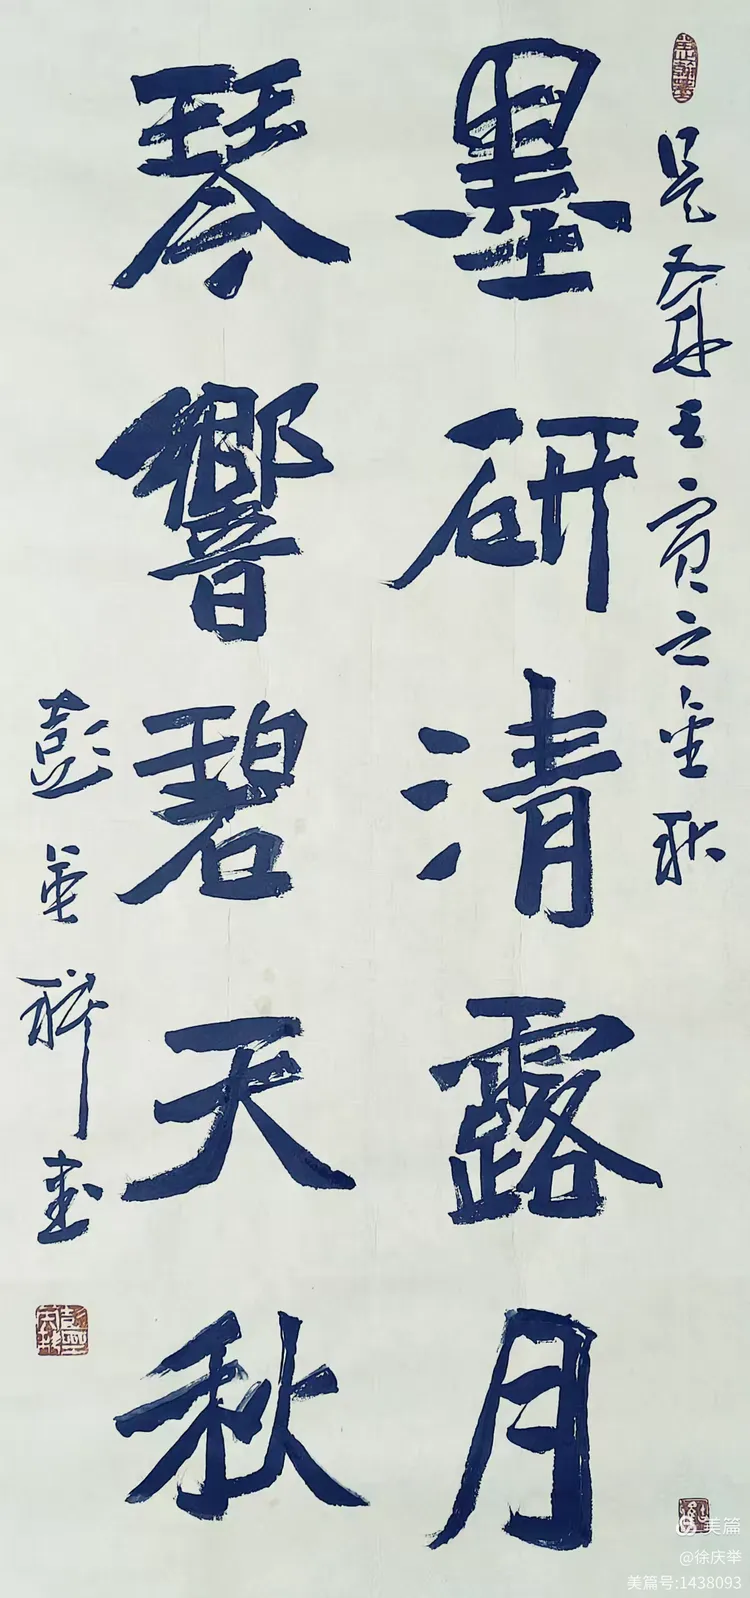 墨研清露月
琴響碧天秋
壬寅之金秋
彭
書
美篇
@徐庆举
美篇号:1438093